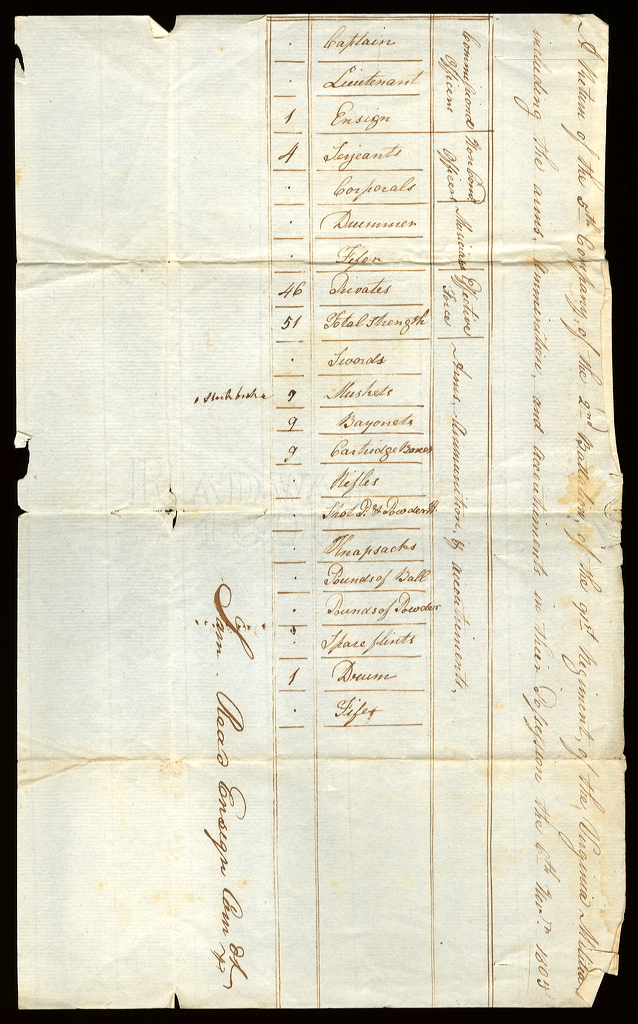 A Return of the 5th Company of the 2nd Battalion, of the 91st Regiment, of the Virginia Militia
including the arms, Ammunition, and accoutriments in their Possession the 6th Novr. 1805
Commissiond Officers
NonComd Officers
Musicians
Effective Force
Arms, Ammunition, & accoutriments.
Captain .
Lieutenant .
Ensign 1
Serjeants 4
Corporals .
Drummer .
Fifer .
Privates 46
Total Strength 51
Swords .
Muskets 9
Bayonets 9
Cartridge Boxes 9
Rifles .
Shot P. & Powder H. .
Knapsacks .
Pounds of Ball .
Pounds of Powder .
Spare flints .
Drum 1
Fifes .
Sam. Read Ensign Com dt